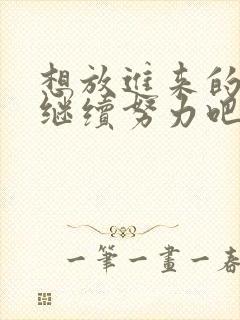 想放进来的
继续努力吧
一筆一畫一春